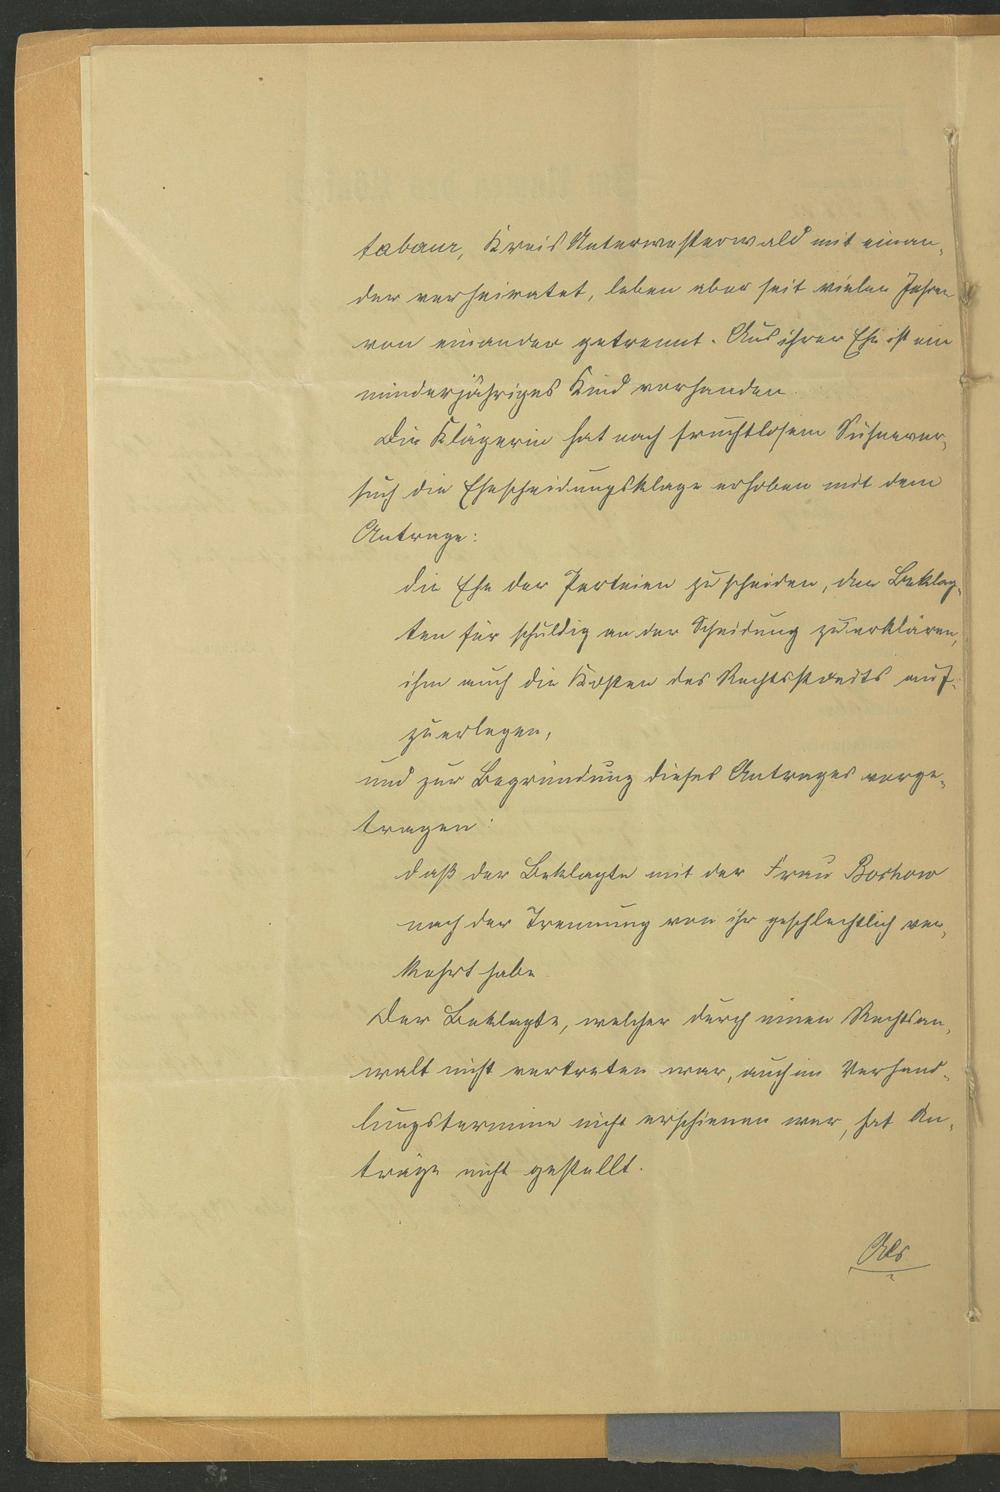 tabaur, Kreis Unterwesterwald mit einan-
der verheiratet, leben aber seit vielen Jahren
von einander getrennt. Aus ihrer Ehe ist ein
minderjähriges Kind vorhanden.
Die Klägerin hat nach fruchtlosem Sühnever-
such die Ehescheidungsklage erhoben mit dem
Antrage:
die Ehe der Parteien zu scheiden, den Beklag-
ten für schuldig an der Scheidung zu erklären,
ihm auch die Kosten des Rechtsstreits auf-
zuerlegen,
und zur Begründung dieses Antrages vorge-
tragen:
daß der Beklagte mit der Frau Borkow
nach der Trennung von ihr geschlechtlich ver-
kehrt habe.
Der Beklagte, welcher durch einen Rechtsan-
walt nicht vertreten war, auch im Verhand-
lungstermine nicht erschienen war, hat An-
träge nicht gestellt.
Als